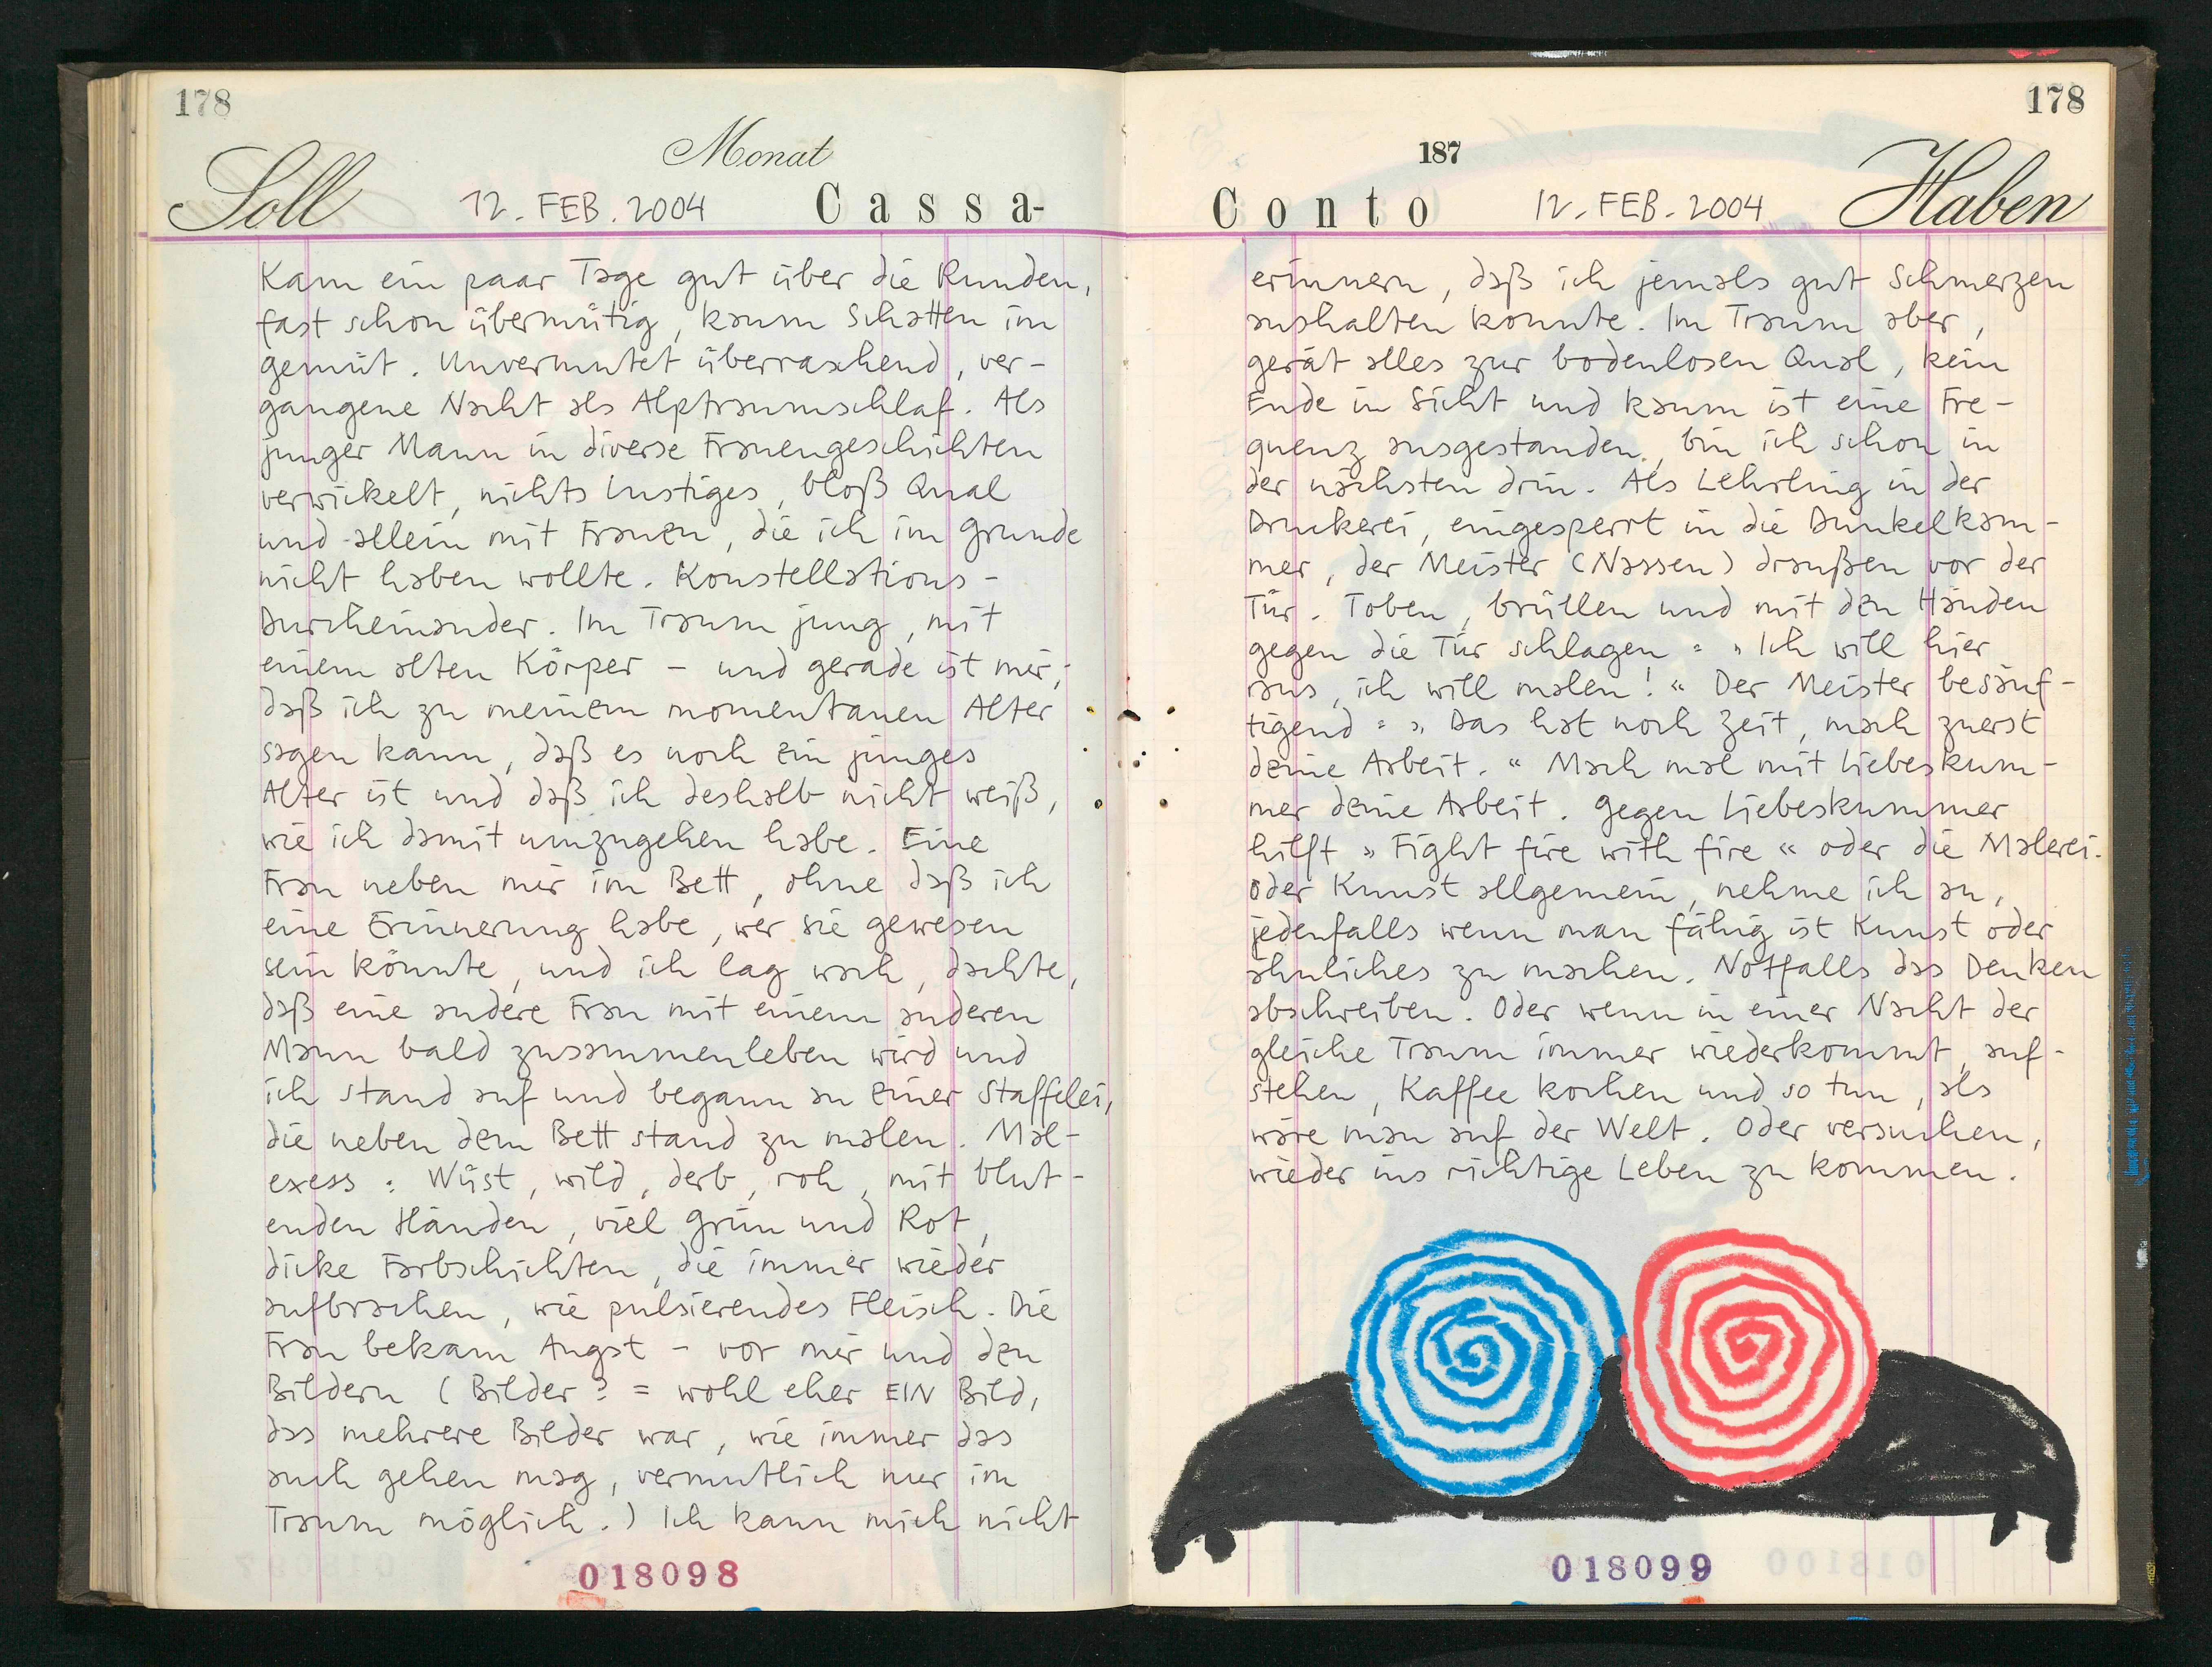 178
Monat
Soll 12. FEB. 2004 Cassa-
Kam ein paar Tage gut über die Runden,
fast schon übermütig, kaum Schatten im
gemüt. Unvermutet überraschend, ver-
gangene Nacht als Alptraumschlaf. Als
junger Mann in diverse Frauengeschichten
verwickelt, nichts lustiges, bloß Qual
und allein mit Frauen, die ich im Grunde
nicht haben wollte. Konstellations-
Durcheinander. Im Traum jung, mit
einem alten Körper – und gerade ist mir,
daß ich zu meinem momentanen Alter
sagen kann, daß es noch ein junges
Alter ist und daß ich deshalb nicht weiß,
wie ich damit umzugehen habe. Eine
Frau neben mir im Bett, ohne daß ich
eine Erinnerung habe, wer sie gewesen
sein könnte, und ich lag wach, dachte,
daß eine andere Frau mit einem anderen
Mann bald zusammenleben wird und
ich stand auf und begann an einer Staffelei,
die neben dem Bett stand zu malen. Mal-
exess: Wüst, wild, derb, roh, mit blut-
enden Händen, viel Grün und Rot,
dicke Farbschichten, die immer wieder
aufbrachen, wie pulsierendes Fleisch. Die
Frau bekam Angst – vor mir und den
Bildern (Bilder? = wohl eher EIN Bild,
das mehrere Bilder war, wie immer das
auch gehen mag, vermutlich nur im
Traum möglich.) Ich kann mich nicht
018098
178
187
Conto 12. FEB. 2004 Haben
erinnern, daß ich jemals gut Schmerzen
aushalten konnte. Im Traum aber,
gerät alles zur bodenlosen Qual, kein
Ende in Sicht und kaum ist eine Fre-
quenz ausgestanden, bin ich schon in
der nächsten drin. Als Lehrling in der
Druckerei, eingesperrt in die Dunkelkam-
mer, der Meister (Nassen) draußen vor der
Tür. Toben, brüllen und mit den Händen
gegen die Tür schlagen: „Ich will hier
raus, ich will malen!“ Der Meister besänf-
tigend: „Das hat noch Zeit, mach zuerst
deine Arbeit.“ Mach mal mit Liebeskum-
mer deine Arbeit. Gegen Liebeskummer
hilft »Fight fire with fire« oder die Malerei.
Oder Kunst allgemein, nehme ich an,
jedenfalls wenn man fähig ist Kunst oder
ähnliches zu machen. Notfalls das Denken
abschreiben. Oder wenn in einer Nacht der
gleiche Traum immer wiederkommt, auf-
stehen, Kaffee kochen und so tun, als
wäre man auf der Welt. Oder versuchen,
wieder ins richtige Leben zu kommen.
018099